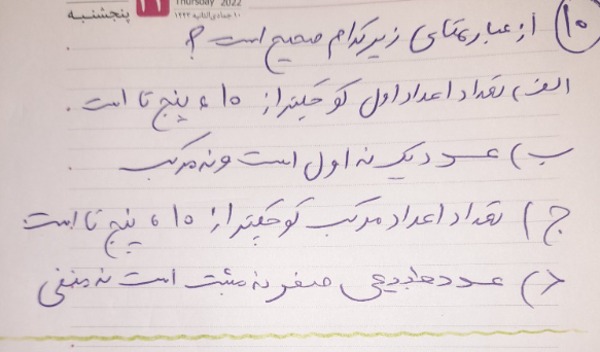 پنجشنبه ۱۱ Thursday 2022
۱۰ جمادی‌الثانیه ۱۴۴۳
۱۰) از عبارتهای زیر کدام صحیح است ؟
الف) تعداد اعداد اول کوچکتر از ۱۰، پنج تا است .
ب) عدد یک نه اول است و نه مرکب
ج) تعداد اعداد مرکب کوچکتر از ۱۰، پنج تا است
د) عدد طبیعی صفر نه مثبت است نه منفی